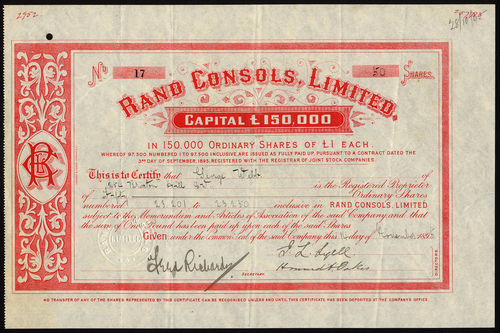 2752
No 17 50 SHARES.
RAND CONSOLS, LIMITED.
CAPITAL £150,000
IN 150,000 ORDINARY SHARES OF £1 EACH.
WHEREOF 97,500 NUMBERED 1 TO 97,500 INCLUSIVE ARE ISSUED AS FULLY PAID UP, PURSUANT TO A CONTRACT DATED THE
3RD DAY OF SEPTEMBER, 1895, REGISTERED WITH THE REGISTRAR OF JOINT STOCK COMPANIES.
This is to Certify that George
is the Registered Proprietor
of Ordinary Shares
numbered to inclusive in RAND CONSOLS, LIMITED
subject to the Memorandum and Articles of Association of the said Company, and that
the sum of One Pound has been paid up upon each of the said Shares
Given under the common Seal of the said Company, this day of November 189
Fred Richards
SECRETARY.
DIRECTORS.
NO TRANSFER OF ANY OF THE SHARES REPRESENTED BY THIS CERTIFICATE CAN BE RECOGNISED UNLESS AND UNTIL THIS CERTIFICATE HAS BEEN DEPOSITED AT THE COMPANY'S OFFICE.